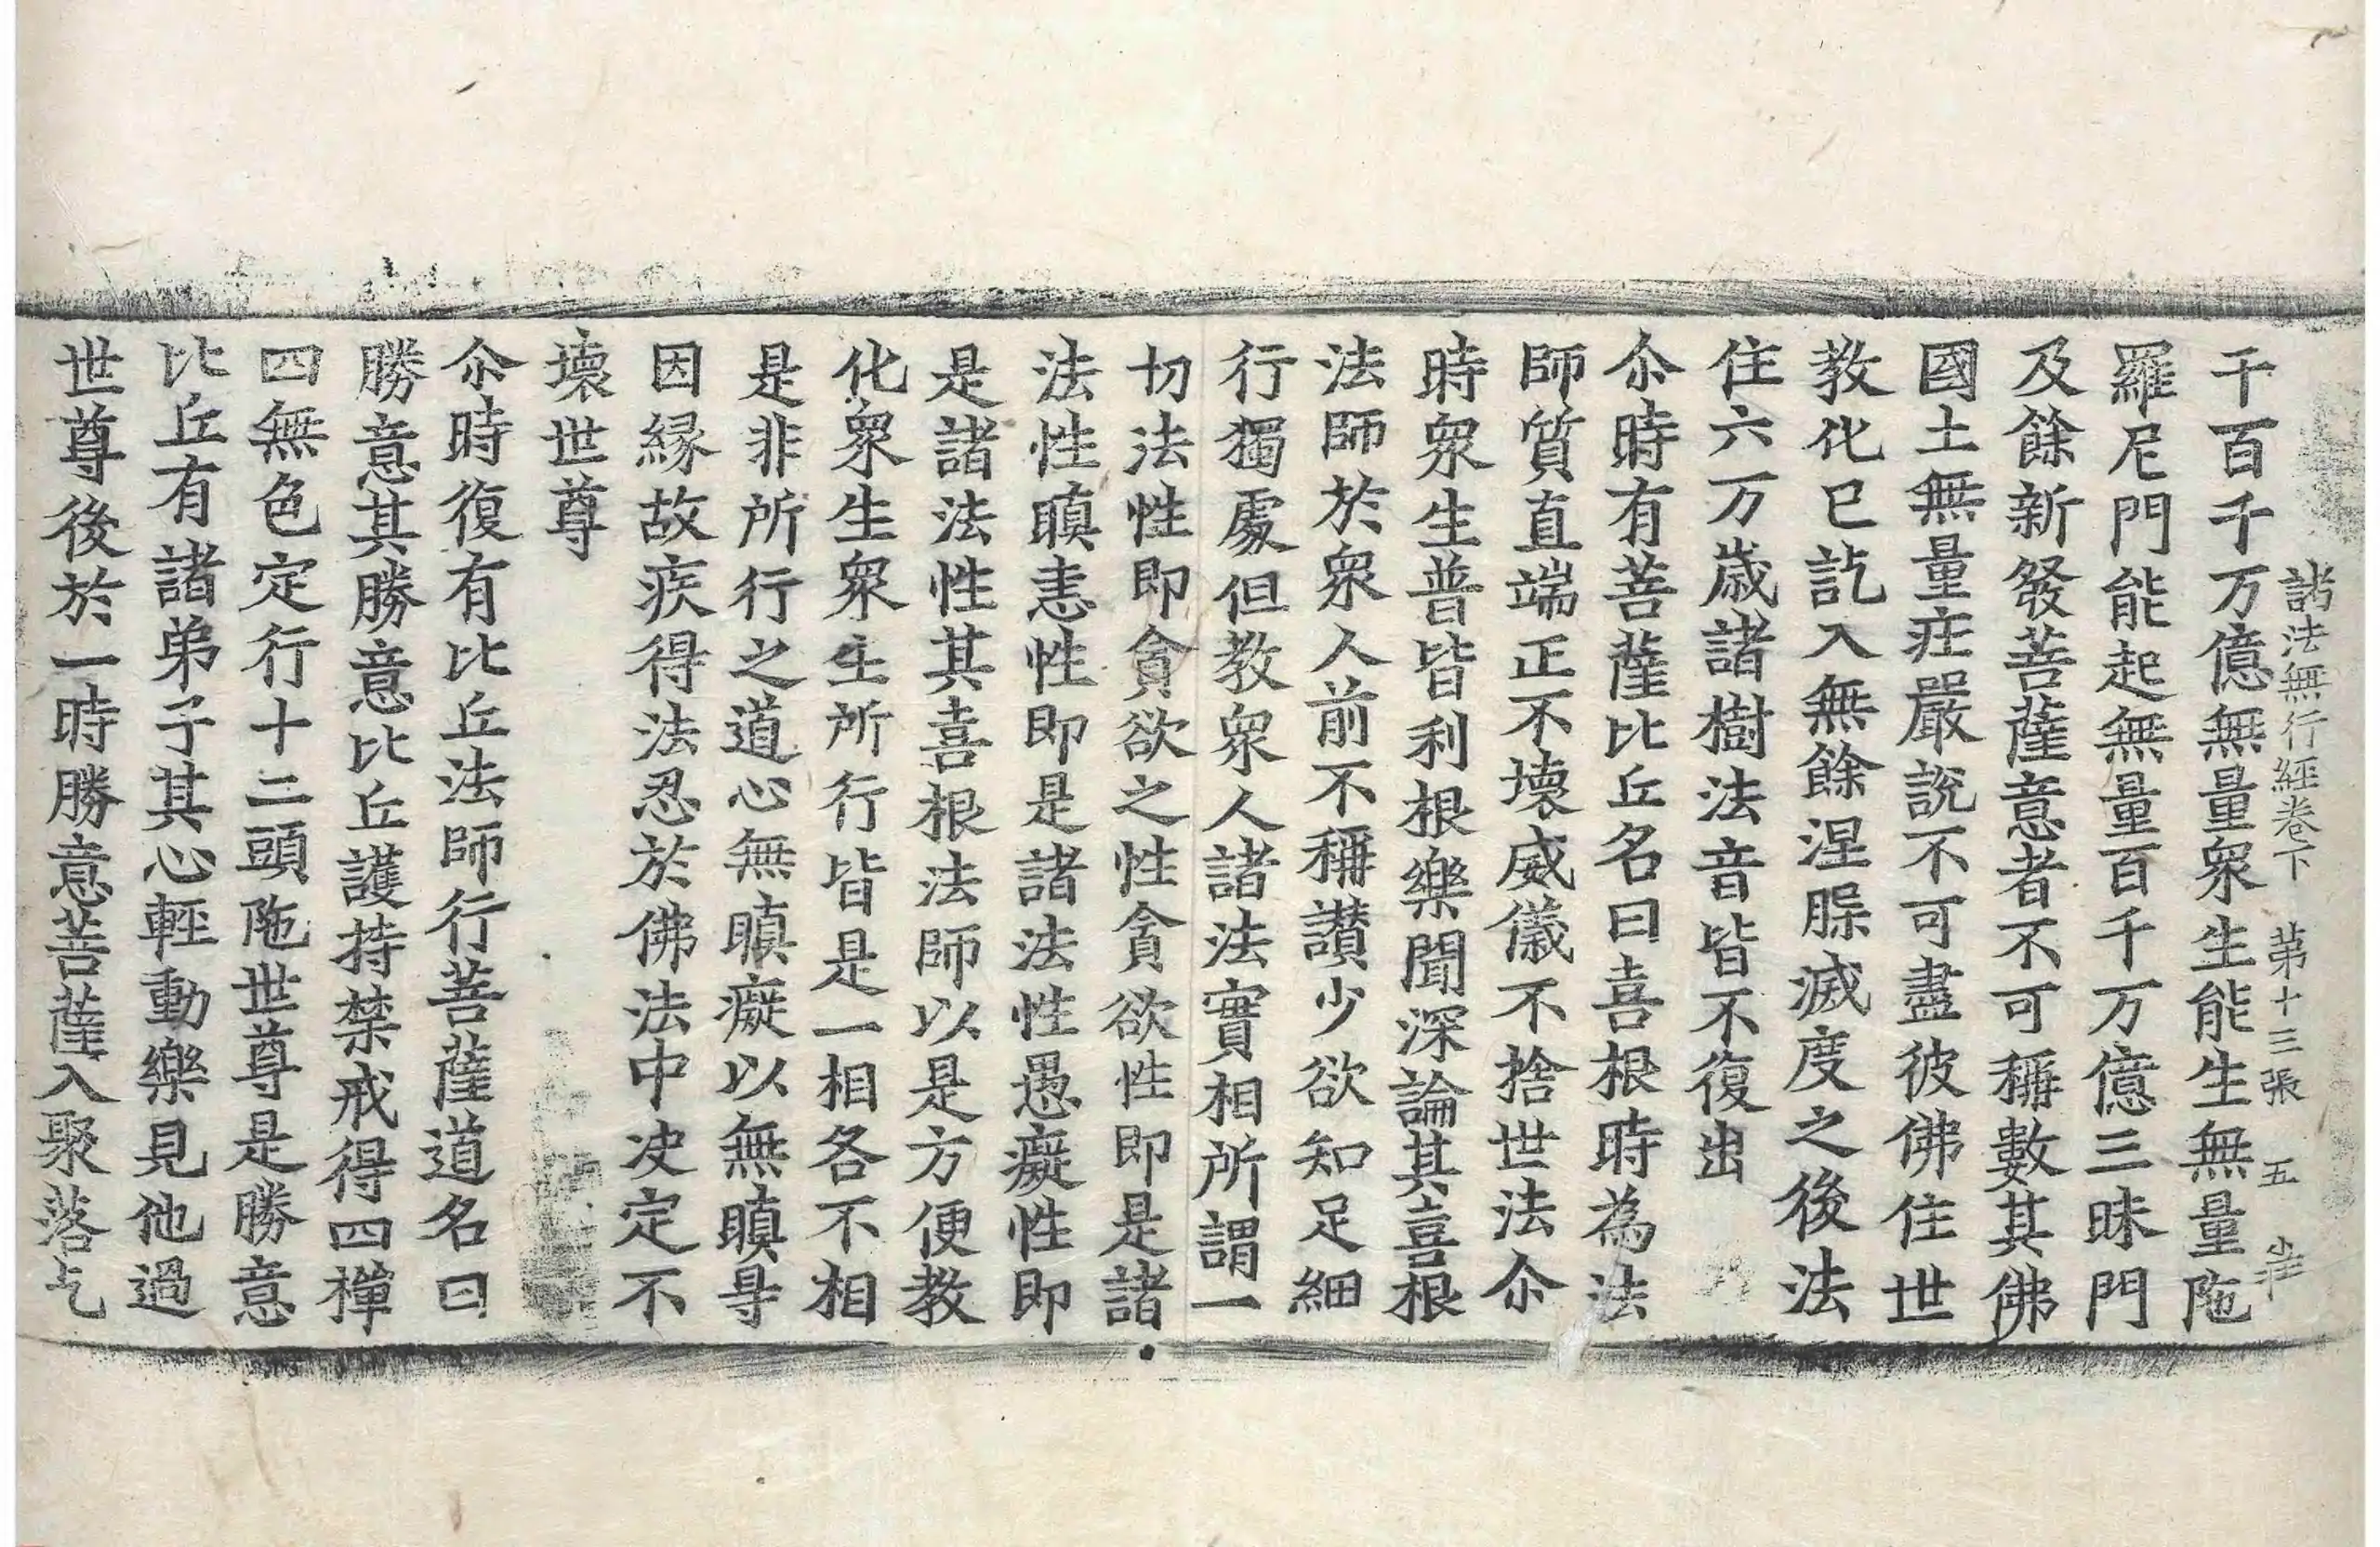 諸法無行經卷下 第十三張 五 𭕒
千百千万億無量衆生能生無量陁
羅尼門能起無量百千万億三昧門
及餘新發菩薩意者不可稱數其佛
國土無量莊嚴說不可盡彼佛住世
教化已訖入無餘涅槃滅度之後法
住六万歲諸樹法音皆不復出
尒時有菩薩比丘名曰喜根時為法
師質直端正不壞威儀不捨世法尒
時衆生普皆利根樂聞深論其喜根
法師於衆人前不稱讃少欲知足細
行獨處但教衆人諸法實相所謂一
切法性即貪欲之性貪欲性即是諸
法性瞋恚性即是諸法性愚癡性即
是諸法性其喜根法師以是方便教
化衆生衆生所行皆是一相各不相
是非所行之道心無瞋癡以無瞋㝵
因縁故疾得法忍於佛法中决定不
壞世尊
尒時復有比丘法師行菩薩道名曰
勝意其勝意比丘護持禁戒得四禪
四無色定行十二頭陁世尊是勝意
比丘有諸弟子其心輕動樂見他過
世尊後於一時勝意菩薩入聚落乞